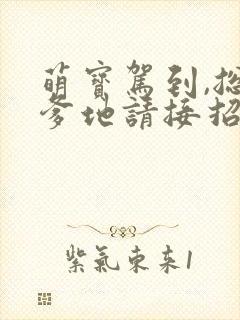 萌寶駕到,總
爹地請接招
紫氣東來1